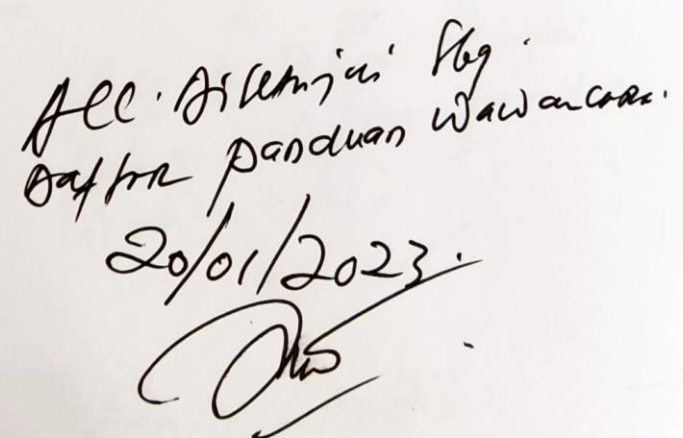 Acc. disetujui sbg.
Daftar panduan wawancara.
20/01/2023.